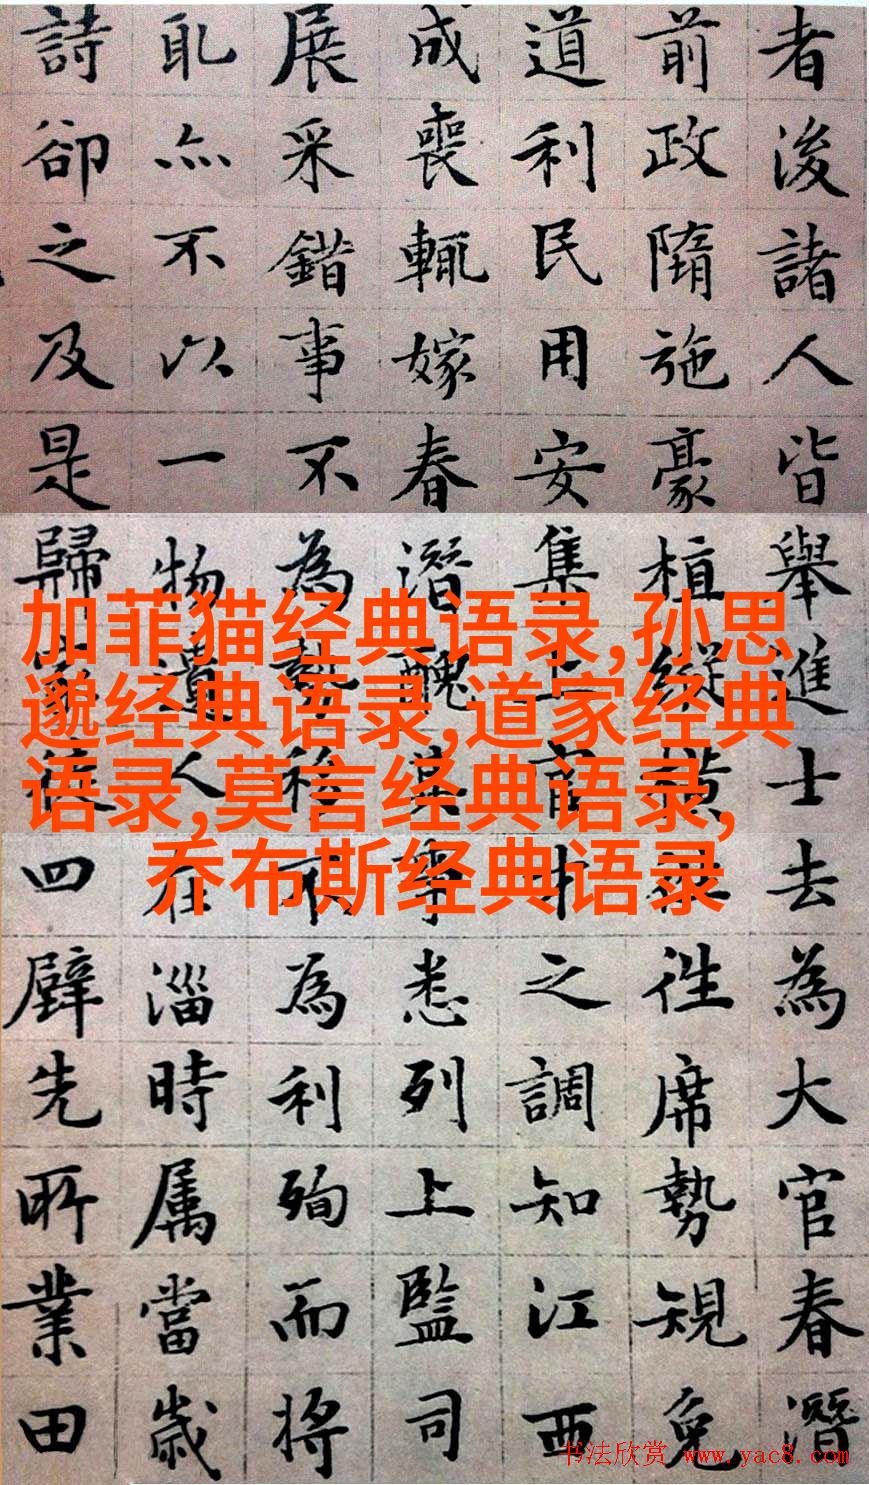 者後諸人皆舉進士去為大官春潛
前政隋施豪植縱橫往席勢規免
道利民用安集上才之調知江西
成喪輒嫁春潛醜其事悉列上監司
展采錯事不為勢移不為利殉而將
耴亦不以一物遺人在淄時属當歲
詩卻之及是歸家徒四壁先所業田
加菲猫经典语录,孙思
邈经典语录,道家经典
语录,莫言经典语录,
乔布斯经典语录
书法欣赏 www.yac8.com